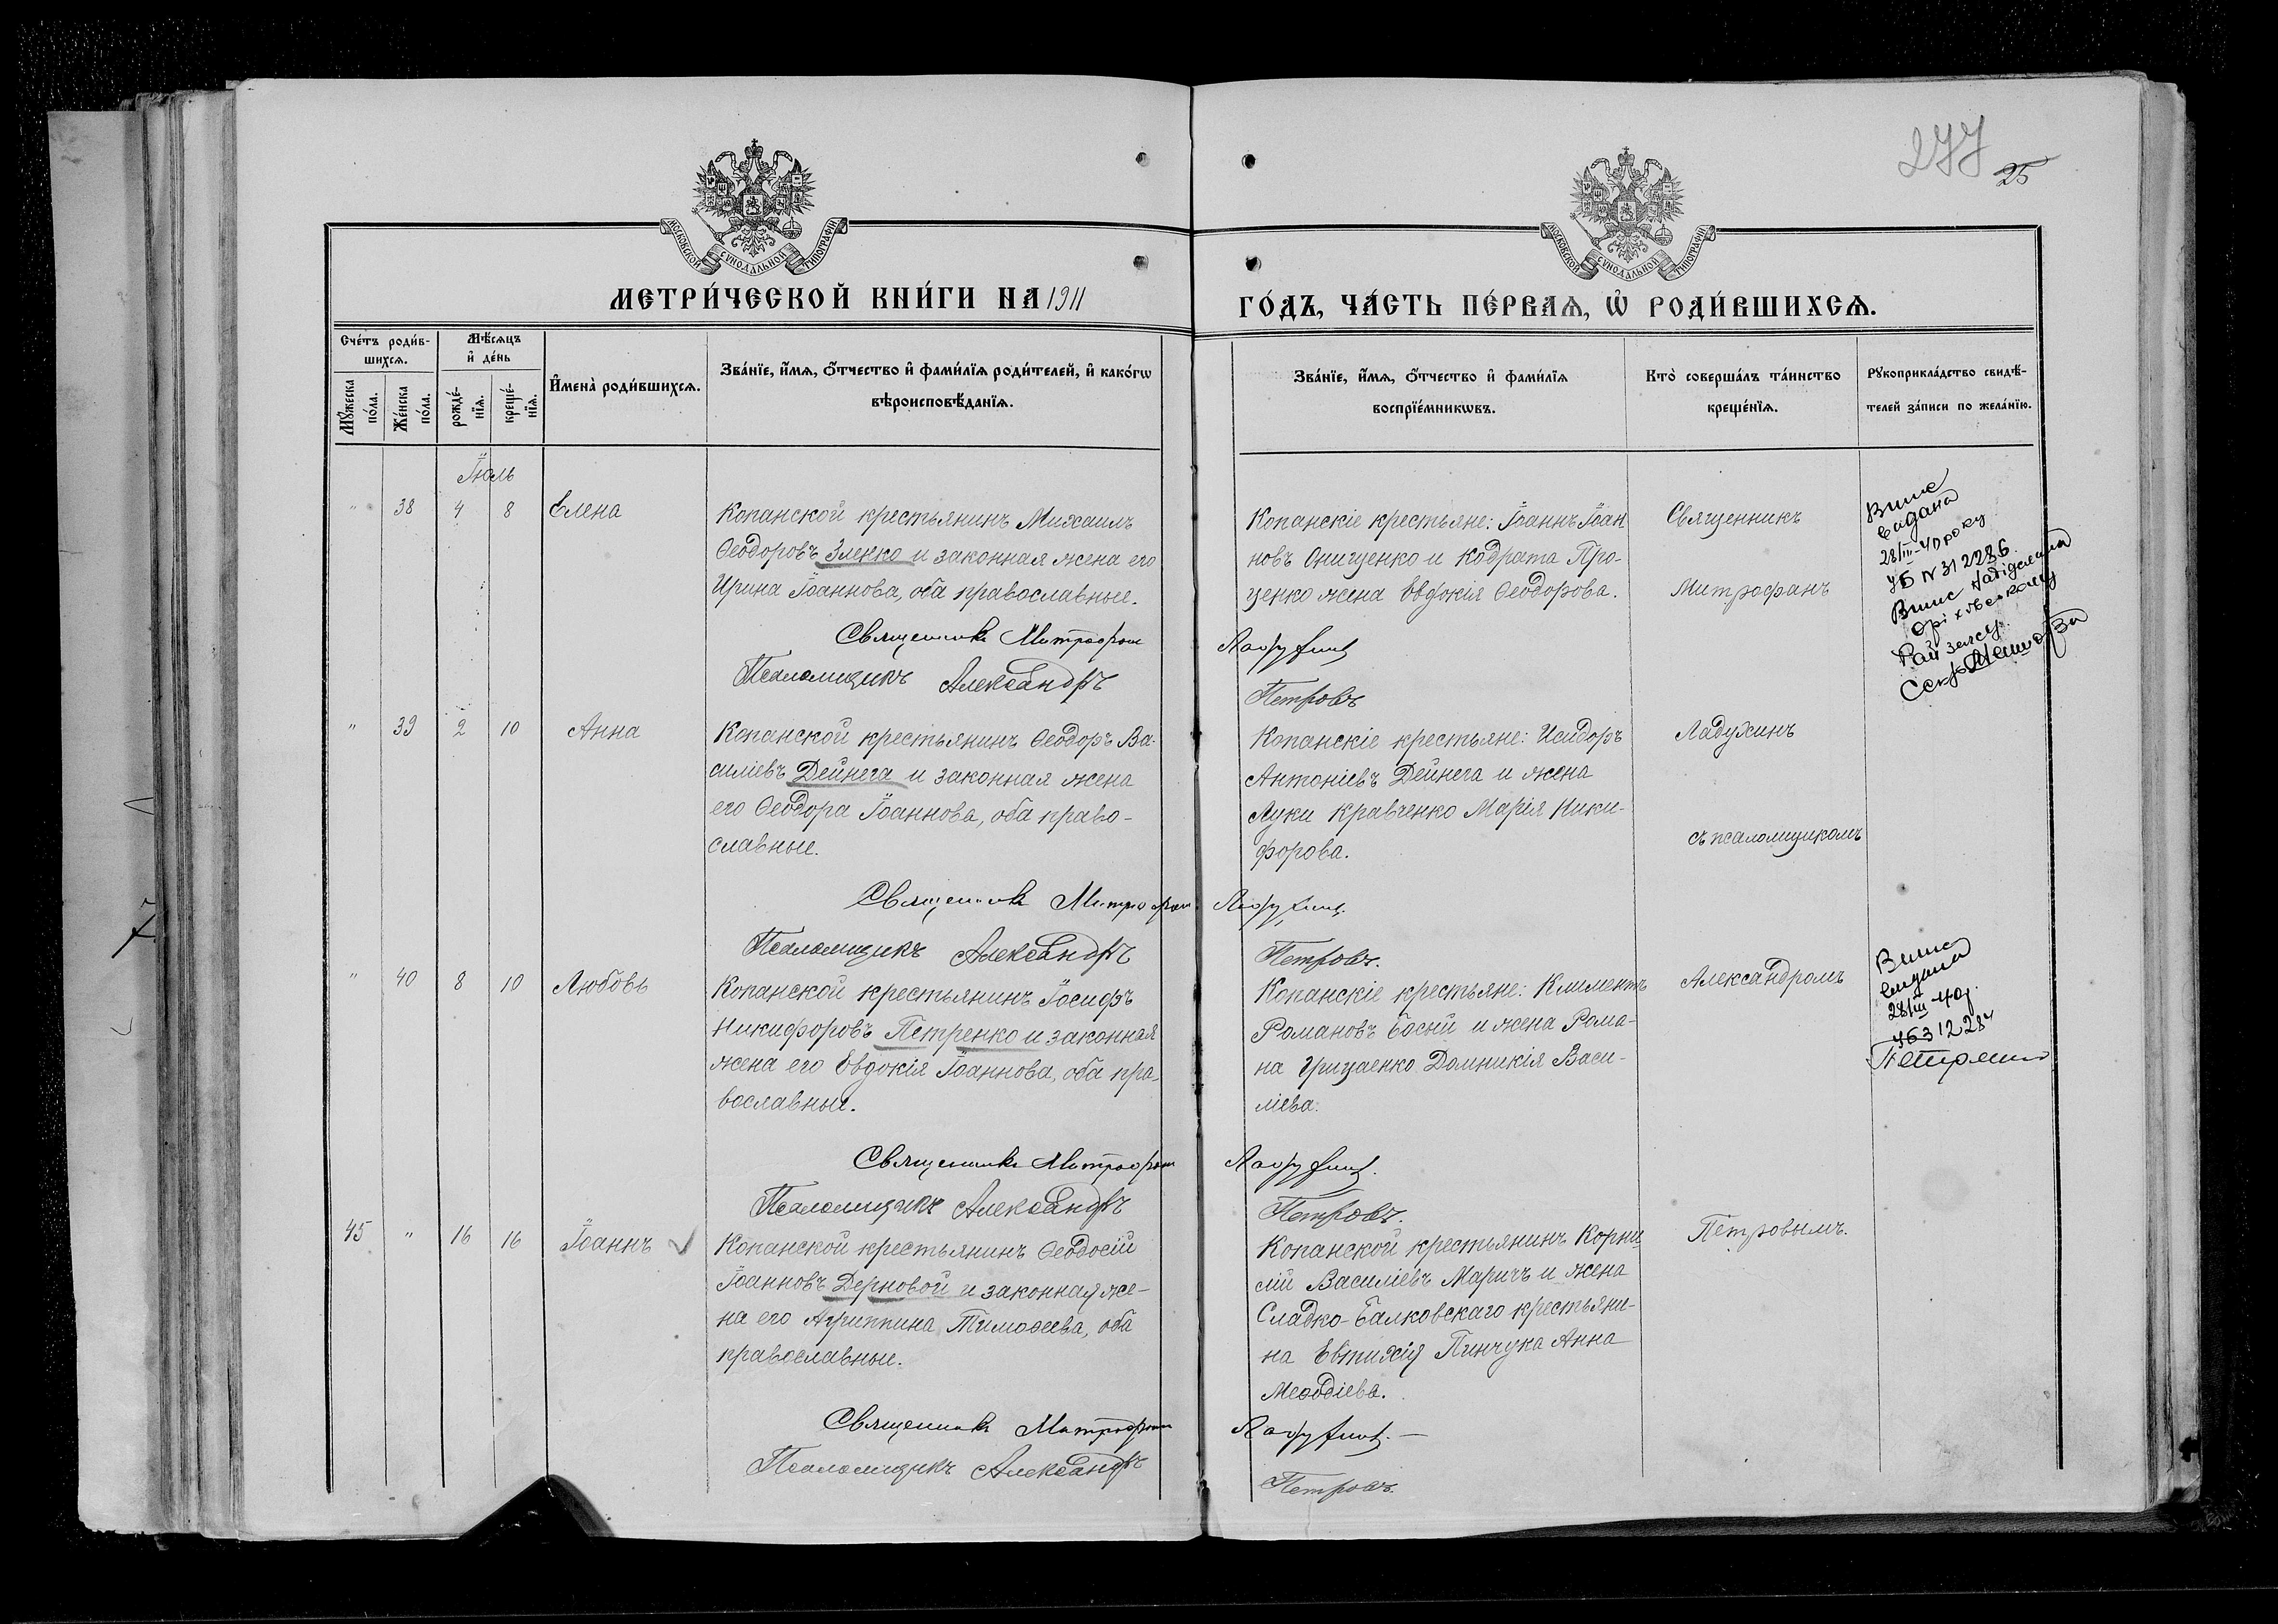 277
25
МОСКОВСКОЙ СѴНОДАЛЬНОЙ ТИПОГРАФІИ
МОСКОВСКОЙ СѴНОДАЛЬНОЙ ТИПОГРАФІИ
МЕТРИ́ЧЕСКОЙ КНИ́ГИ НА 1911
ГО́ДЪ, ЧА́СТЬ ПЕ́РВАѦ, Ѡ҆ РОДИ́ВШИХСѦ.
Сче́тъ роди́в-
шихсѧ.
Мꙋ́жеска
по́ла.
Же́нска
по́ла.
Мѣ́сѧцъ
и҆ де́нь
рожде́-
нїѧ.
креще́-
нїѧ.
И҆мена̀ роди́вшихсѧ.
Зва́нїе, и҆́мѧ, ѻ҆́тчество и҆ фами́лїѧ роди́телей, и҆ како́гѡ
вѣроисповѣ́данїѧ.
Зва́нїе, и҆́мѧ, ѻ҆́тчество и҆ фами́лїѧ
воспрїе́мникѡвъ.
Кто̀ соверша́лъ та́инство
креще́нїѧ.
Рꙋкоприкла́дство свидѣ́-
телей за́писи по жела́нїю.
Іюль
" 38 4 8 Елена
Копанской крестьянинъ Михаилъ
Ѳеодоровъ Зленко и законная жена его
Ирина Іоаннова, оба православные.
Священникъ Митрофан
Псаломщикъ Александръ
Копанскіе крестьяне: Іоаннъ Іоан
новъ Онищенко и Кодрата Про-
ценко жена Евдокія Ѳеодорова.
Ладухинъ
Петровъ
Священникъ
Митрофанъ
Випис
видана
28/III-40 року
УБ N 312286
Випис надіслана
Секр
" 39 2 10 Анна
Копанской крестьянинъ Ѳеодоръ Ва-
силіевъ Дейнега и законная жена
его Ѳеодора Іоаннова, оба право-
славные.
Священникъ Митрофан
Псаломщикъ Александръ
Копанскіе крестьяне: Исидоръ
Антоніевъ Дейнега и жена
Луки Кравченко Марія Ники-
форова.
Ладухинъ.
Петровъ.
Ладухинъ
съ псаломщикомъ
" 40 8 10 Любовь
Копанской крестьянинъ Іосифъ
Никифоровъ Петренко и законная
жена его Евдокія Іоаннова, оба пра-
вославные.
Священникъ Митрофан
Псаломщикъ Александръ
Копанскіе крестьяне: Климентъ
Романовъ Босый и жена Рома-
на Грицаенко Домникія Васи-
ліева.
Ладухинъ.
Петровъ.
Александромъ
Випис
видана
28/III 40
312284
Петренко
45 " 16 16 Іоаннъ
Копанской крестьянинъ Ѳеодосій
Іоанновъ Дерновой и законная же-
на его Агриппина Тимоѳеева, оба
православные.
Священникъ Митрофан
Псаломщикъ Александръ
Копанской крестьянинъ Корни
лій Василіевъ Маричъ и жена
Сладко-Балковскаго крестьяни-
на Евтихія Пинчука Анна
Меѳодіева.
Ладухинъ.
Петровъ.
Петровымъ.